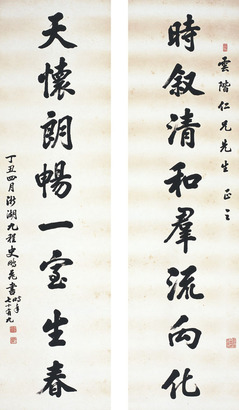 雲階仁兄先生正之
時叙清和羣流向化
天懷朗暢一室生春
丁丑四月澂湖九程史時年七十有九